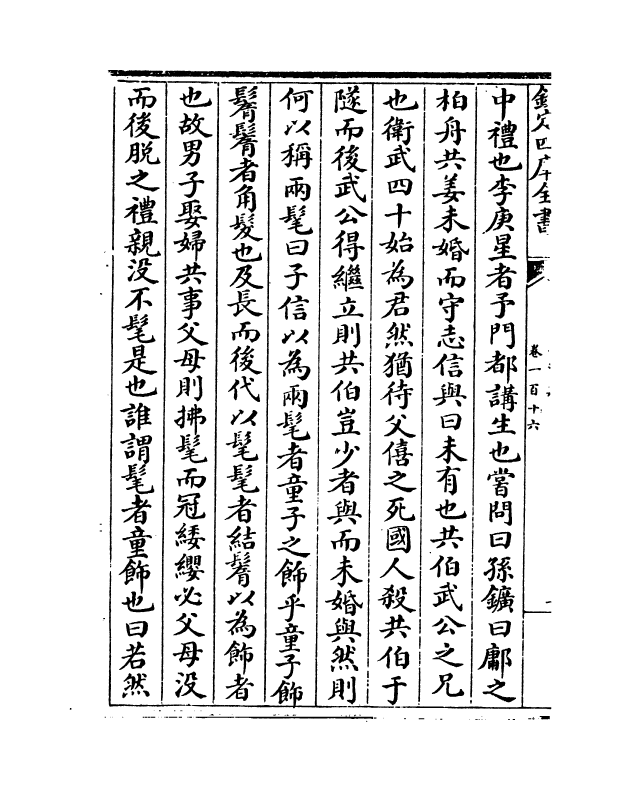 欽定四庫全書
卷一百十六
中禮也李庚星者予門都講生也嘗問曰孫鑛曰鄘之
柏舟共姜未婚而守志信與曰未有也共伯武公之兄
也衛武四十始為君然猶待父僖之死國人殺共伯于
隧而後武公得繼立則共伯豈少者與而未婚與然則
何以稱兩髦曰子信以為兩髦者童子之飾乎童子飾
鬋鬌者角髮也及長而後代以髦髦者結鬌以為飾者
也故男子娶婦共事父母則拂髦而冠緌纓必父母没
而後脱之禮親没不髦是也誰謂髦者童飾也曰若然